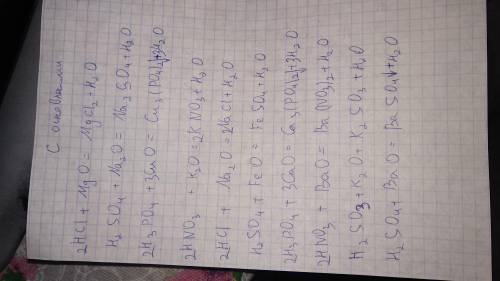 С основаниями
2HCl + MgO = MgCl2 + H2O
H2SO4 + Na2O = Na2SO4 + H2O
2H3PO4 + 3CuO = Cu3(PO4)2↓ + 3H2O
2HNO3 + K2O = 2KNO3 + H2O
2HCl + Na2O = 2NaCl + H2O
H2SO4 + FeO = FeSO4 + H2O
2H3PO4 + 3CaO = Ca3(PO4)2↓ + 3H2O
2HNO3 + BaO = Ba(NO3)2 + H2O
H2SO3 + K2O + K2SO3 + H2O
H2SO4 + BaO = BaSO4↓ + H2O